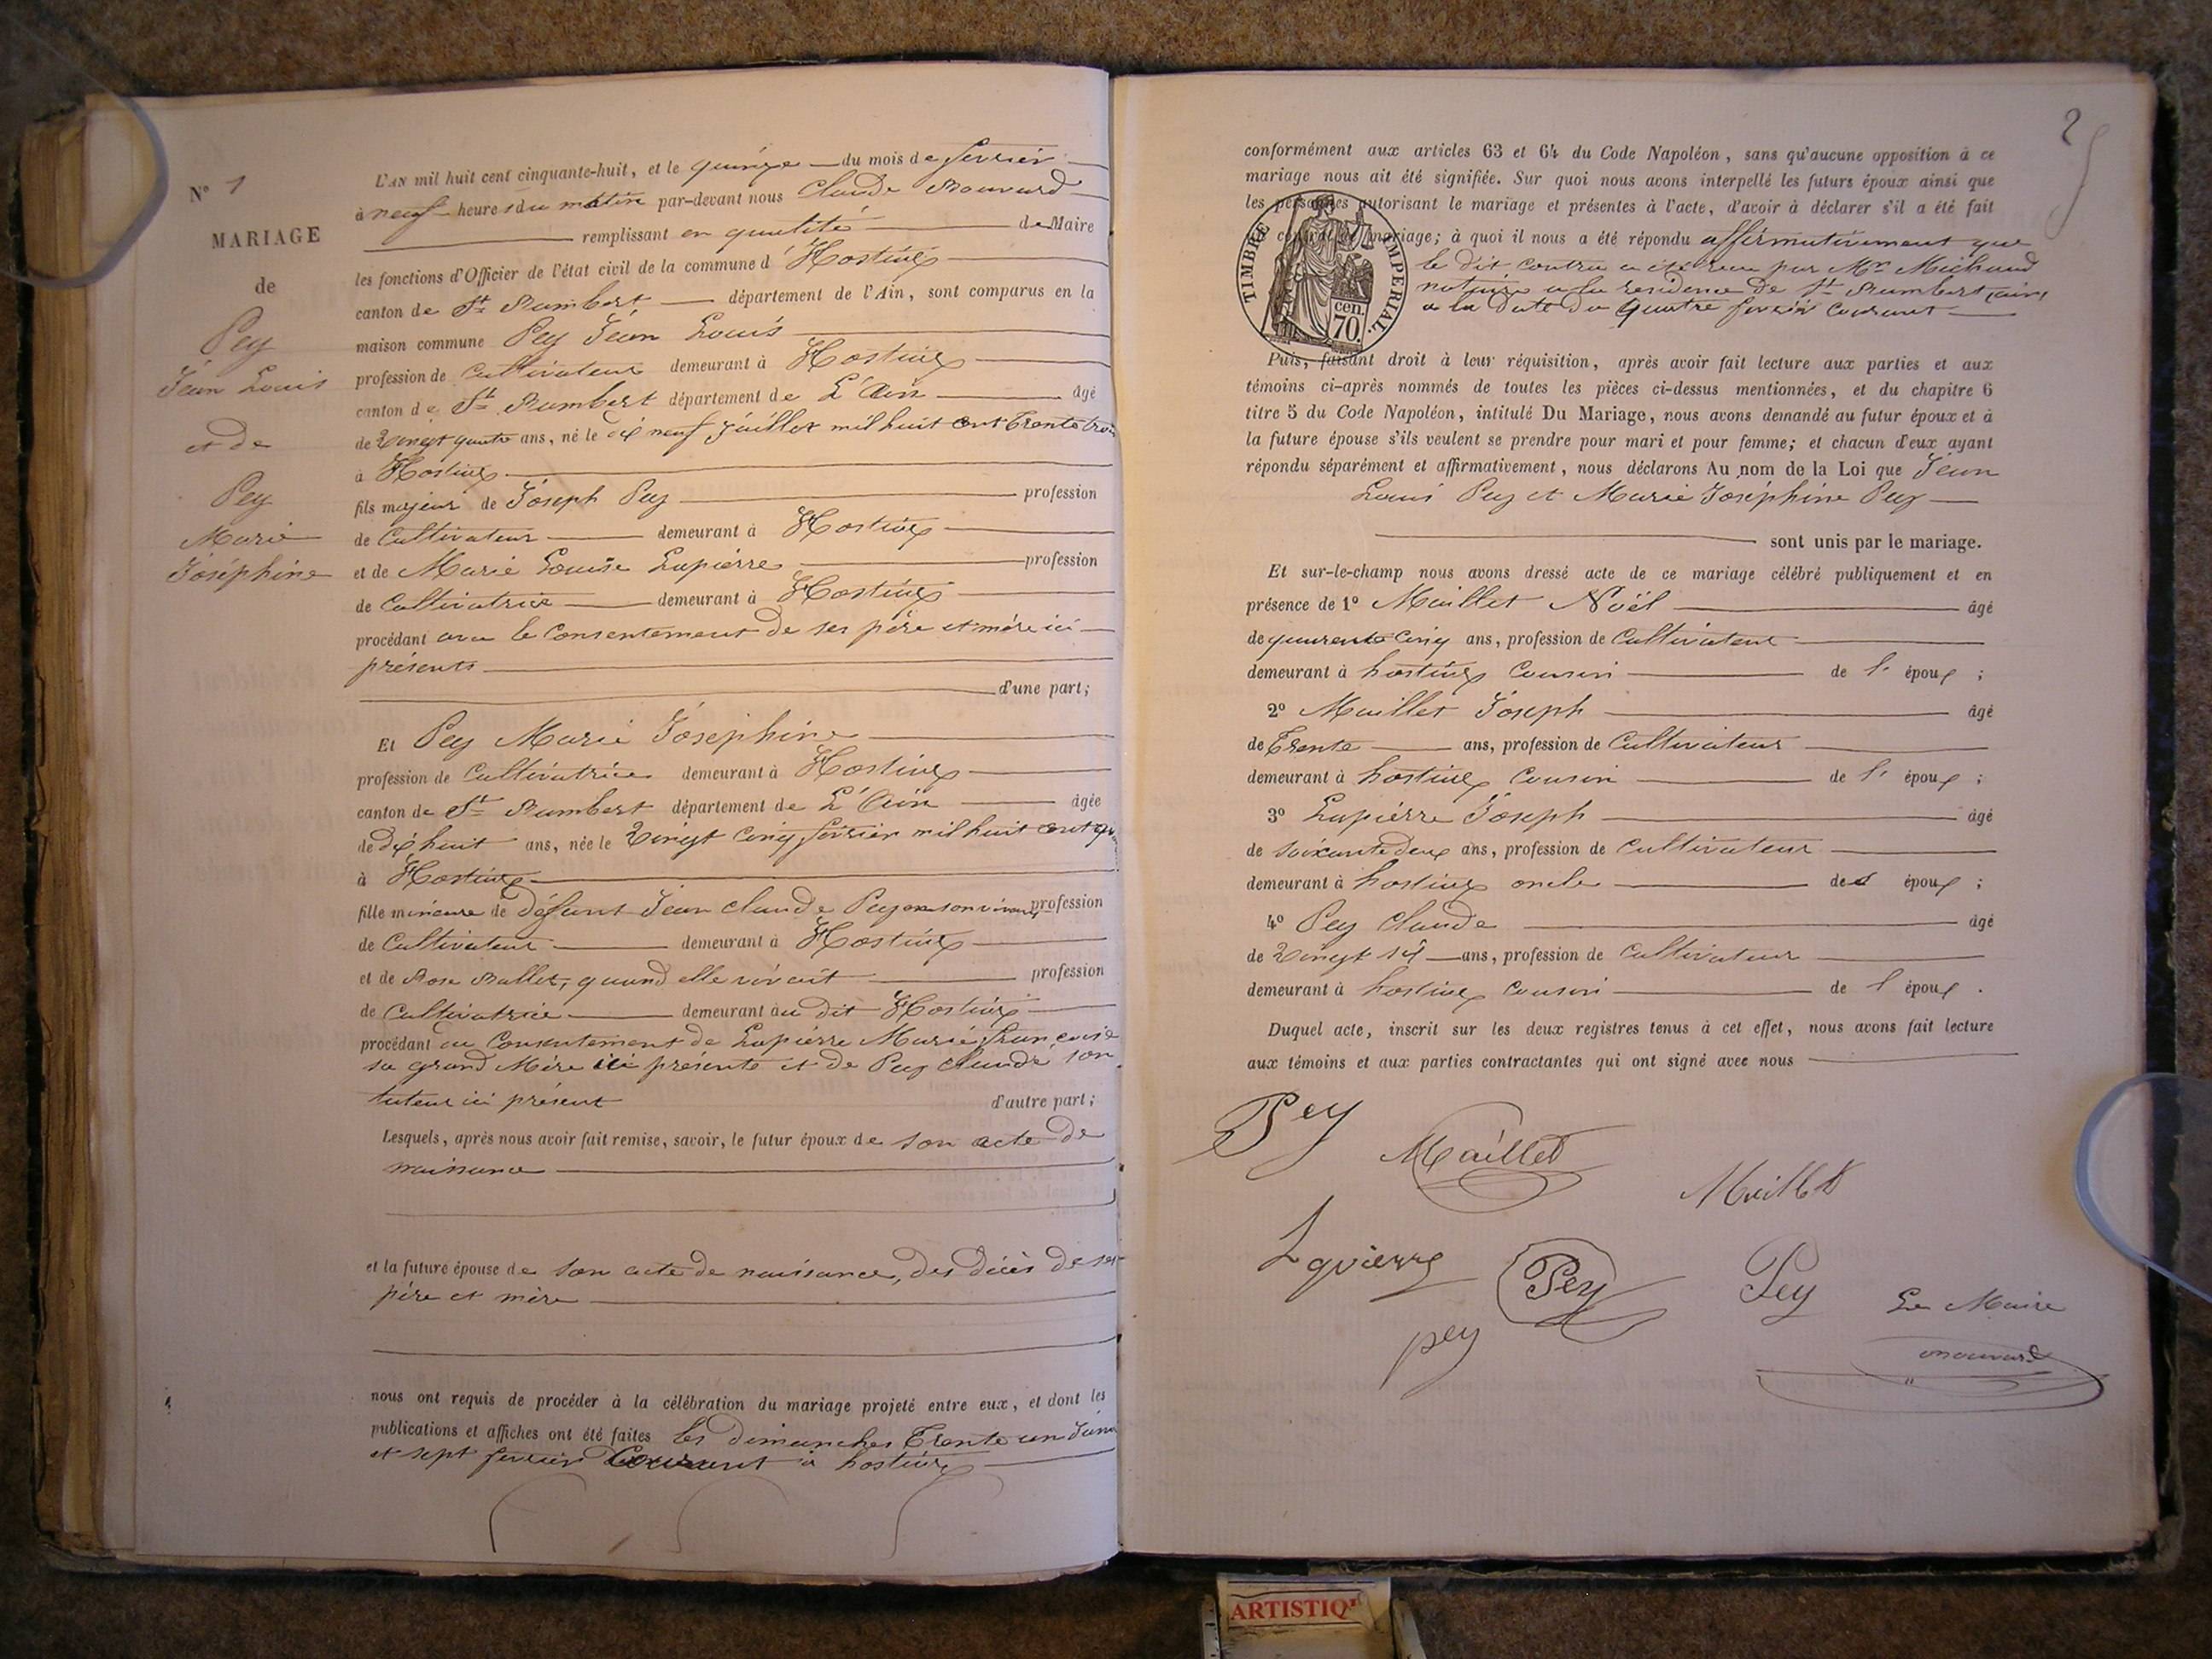 N° 1
MARIAGE
de
Pey
Jean Louis
et de
Pey
Marie
Joséphine
L'AN mil huit cent cinquante-huit, et le quinze du mois de fevrier
à neuf heures du matin par-devant nous Claude Bouvard
remplissant en qualité de Maire
les fonctions d'Officier de l'état civil de la commune d'Hostiaz
canton de St Rambert département de l'Ain, sont comparus en la
maison commune Pey Jean Louis
profession de Cultivateur demeurant à Hostiaz
canton de St Rambert département de L'Ain âgé
de Vingt quatre ans, né le dix neuf Juillet mil huit cent trente trois
à Hostiaz
fils majeur de Joseph Pey profession
de Cultivateur demeurant à Hostiaz
et de Marie Louise Lapierre profession
de Cultivatrice demeurant à Hostiaz
procédant avec le Consentement de ses père et mère ici
présents
d'une part;
Et Pey Marie Joséphine
profession de Cultivatrice demeurant à Hostiaz
canton de St Rambert département de L'Ain âgée
de dix huit ans, née le Vingt Cinq février mil huit cent
à Hostiaz
fille mineure de défunt Jean Claude Pey en son vivant profession
de Cultivateur demeurant à Hostiaz
et de Rose Ballet, quand elle vivait profession
de Cultivatrice demeurant au dit Hostiaz
procédant du Consentement de Lapierre Marie françoise
sa grand Mère ici présente et de Pey Claude son
tuteur ici présent d'autre part;
Lesquels, après nous avoir fait remise, savoir, le futur époux de son acte de
naissance
et la future épouse de son acte de naissance, des décès de ses
père et mère
nous ont requis de procéder à la célébration du mariage projeté entre eux, et dont les
publications et affiches ont été faites les dimanches Trente un Janv
et sept fevrier Courant à hostiaz
2
conformément aux articles 63 et 64 du Code Napoléon, sans qu'aucune opposition à ce
mariage nous ait été signifiée. Sur quoi nous avons interpellé les futurs époux ainsi que
les personnes autorisant le mariage et présentes à l'acte, d'avoir à déclarer s'il a été fait
un contrat de mariage; à quoi il nous a été répondu affirmativement que
le dit contra a été recu par Mr Michaud
notaire a la residence de St Rambert (ain)
a la date du quatre fevrier Courant
TIMBRE IMPERIAL
cen.
70.
Puis, faisant droit à leur réquisition, après avoir fait lecture aux parties et aux
témoins ci-après nommés de toutes les pièces ci-dessus mentionnées, et du chapitre 6
titre 5 du Code Napoléon, intitulé Du Mariage, nous avons demandé au futur époux et à
la future épouse s'ils veulent se prendre pour mari et pour femme; et chacun d'eux ayant
répondu séparément et affirmativement, nous déclarons Au nom de la Loi que Jean
Louis Pey et Marie Joséphine Pey
sont unis par le mariage.
Et sur-le-champ nous avons dressé acte de ce mariage célébré publiquement et en
présence de 1° Maillet Noël âgé
de quarente cinq ans, profession de Cultivateur
demeurant à hostiaz Cousin de l' époux ;
2° Maillet Joseph âgé
de Trente ans, profession de Cultivateur
demeurant à hostiaz Cousin de l' époux ;
3° Lapierre Joseph âgé
de soixante deux ans, profession de Cultivateur
demeurant à hostiaz oncle des époux ;
4° Pey Claude âgé
de Vingt six ans, profession de Cultivateur
demeurant à hostiaz Cousin de l époux .
Duquel acte, inscrit sur les deux registres tenus à cet effet, nous avons fait lecture
aux témoins et aux parties contractantes qui ont signé avec nous
Pey
Maillet
Maillet
Lapierre
Pey
Pey
Le Maire
pey
Bouvard
ARTISTIQ